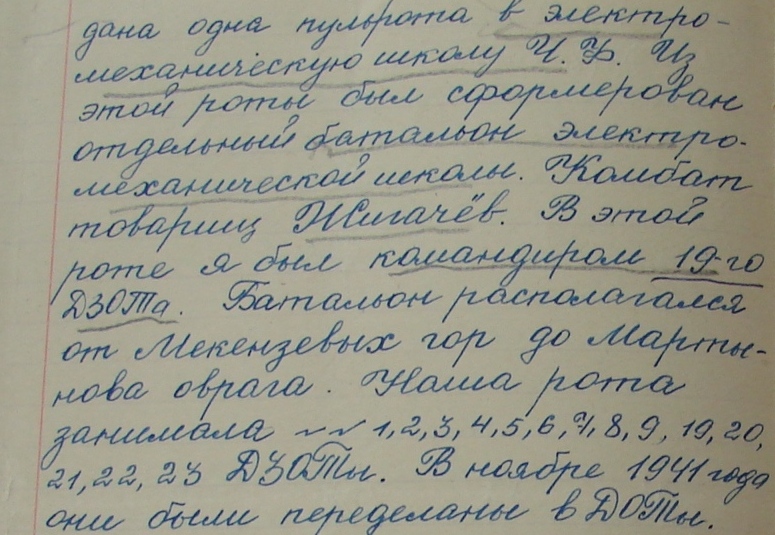 дана одна пульрота в электро-
механическую школу Ч.Ф. Из
этой роты был сформерован
отдельный батальон электро-
механической школы. Комбат
товарищ Жигачёв. В этой
роте я был командиром 19-го
ДЗОТа. Батальон располагался
от Мекензевых гор до Марты-
нова оврага. Наша рота
занимала 1,2,3,4,5,6,7,8,9,19,20,
21,22,23 ДЗОТы. В ноябре 1941 года
они были переделаны в ДОТы.